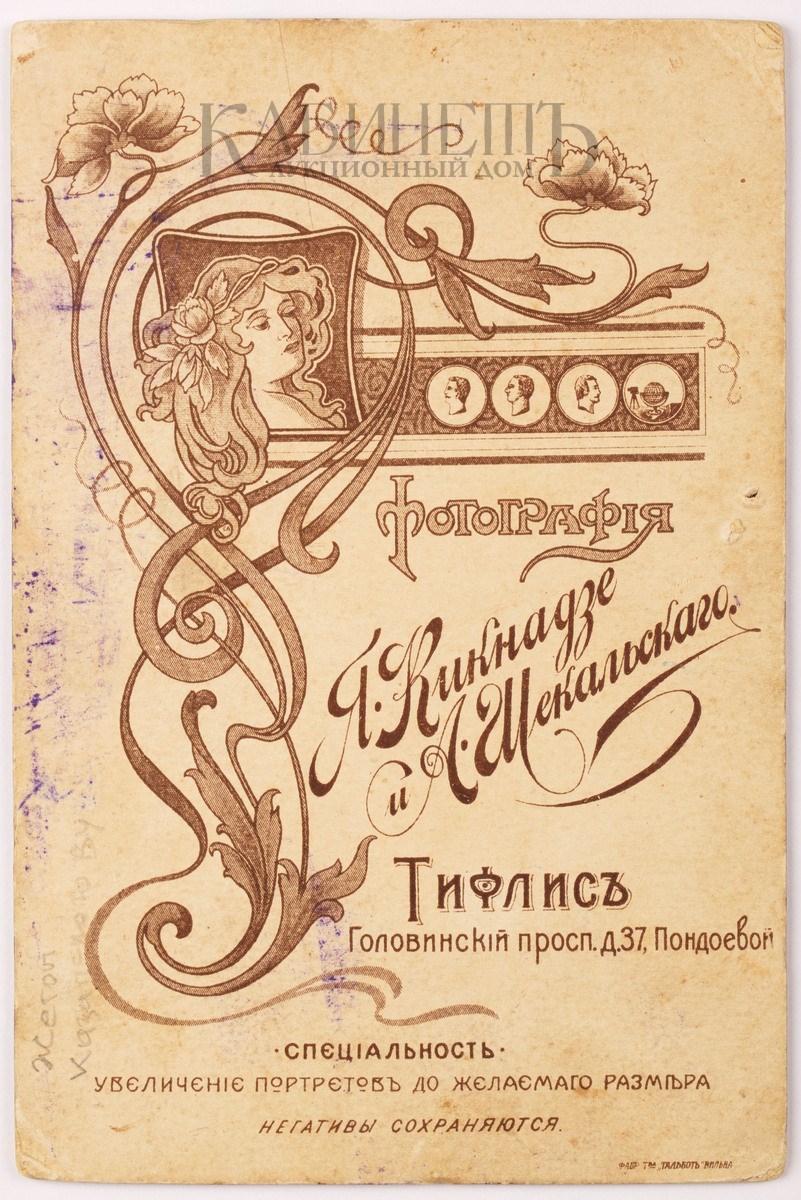 КАБИНЕТЪ
АУКЦИОННЫЙ ДОМ
Фотографія
Я. Кикнадзе
и А. Щекальскаго.
Тифлисъ
Головинскій просп. д. 37, Пондоевой
·СПЕЦІАЛЬНОСТЬ·
УВЕЛИЧЕНІЕ ПОРТРЕТОВЪ ДО ЖЕЛАЕМАГО РАЗМѢРА
НЕГАТИВЫ СОХРАНЯЮТСЯ.
ФАБР. Тва „ТАЛЬБОТЪ" ВИЛЬНА
Жетон